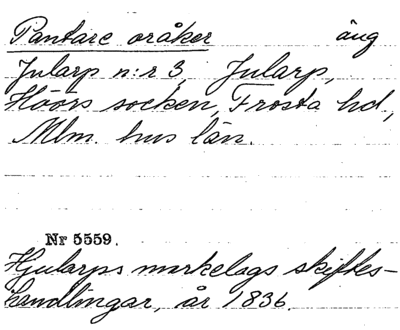 Pantare oråker äng
Jularp n:r 3, Jularp,
Höörs socken, Frosta hd,
Mlm. hus län.
Nr 5559.
Hjularps markelags skiftes-
handlingar, år 1836.